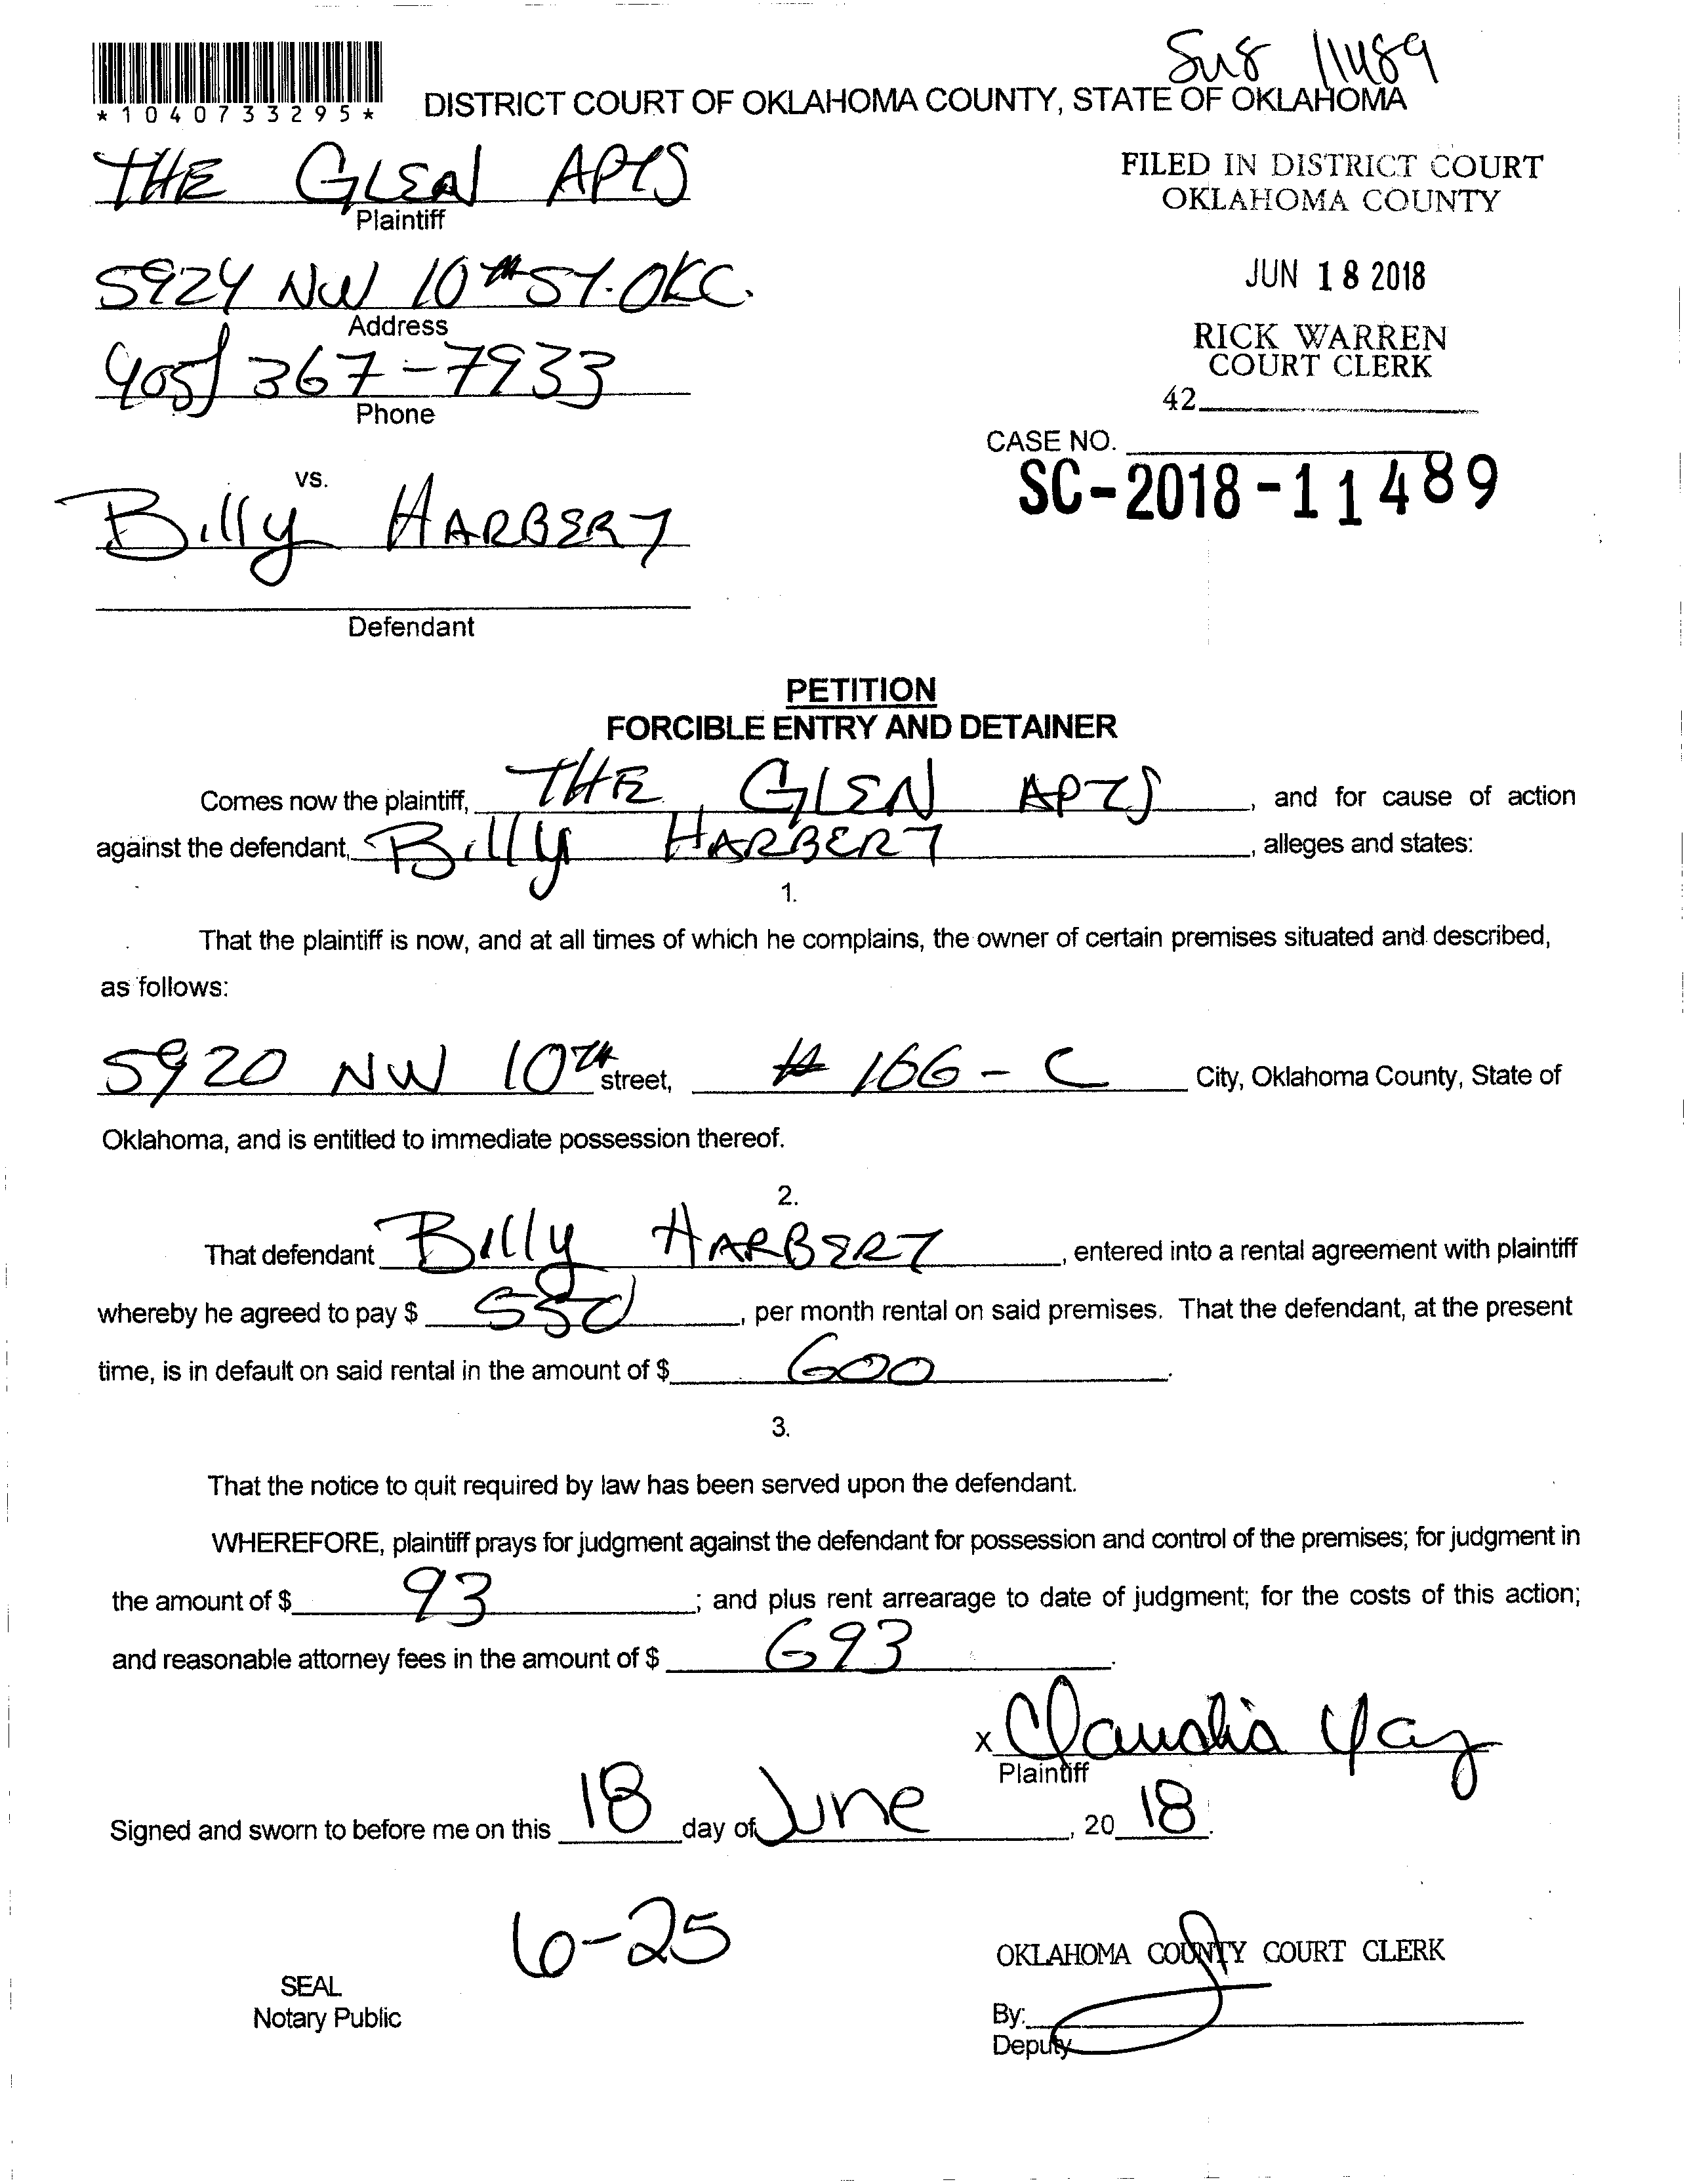 11489
*1040733295*
DISTRICT COURT OF OKLAHOMA COUNTY, STATE OF OKLAHOMA
THE GLEN APTS
Plaintiff
FILED IN DISTRICT COURT
OKLAHOMA COUNTY
5924 NW 10th ST. OKC.
Address
JUN 18 2018
405) 367-7933
Phone
RICK WARREN
COURT CLERK
42
CASE NO.
SC-2018-11489
vs.
Billy HARBERT
Defendant
PETITION
FORCIBLE ENTRY AND DETAINER
Comes now the plaintiff, THE GLEN APTS, and for cause of action
against the defendant, Billy HARBERT, alleges and states:
1.
That the plaintiff is now, and at all times of which he complains, the owner of certain premises situated and described,
as follows:
5920 NW 10th street, # 166-C City, Oklahoma County, State of
Oklahoma, and is entitled to immediate possession thereof.
2.
That defendant Billy HARBERT, entered into a rental agreement with plaintiff
whereby he agreed to pay $ 550, per month rental on said premises. That the defendant, at the present
time, is in default on said rental in the amount of $ 600.
3.
That the notice to quit required by law has been served upon the defendant.
WHEREFORE, plaintiff prays for judgment against the defendant for possession and control of the premises; for judgment in
the amount of $ 93; and plus rent arrearage to date of judgment; for the costs of this action;
and reasonable attorney fees in the amount of $ 693.
x Claudia
Plaintiff
Signed and sworn to before me on this 18 day of June, 2018.
6-25
SEAL
Notary Public
OKLAHOMA COUNTY COURT CLERK
By:
Deputy